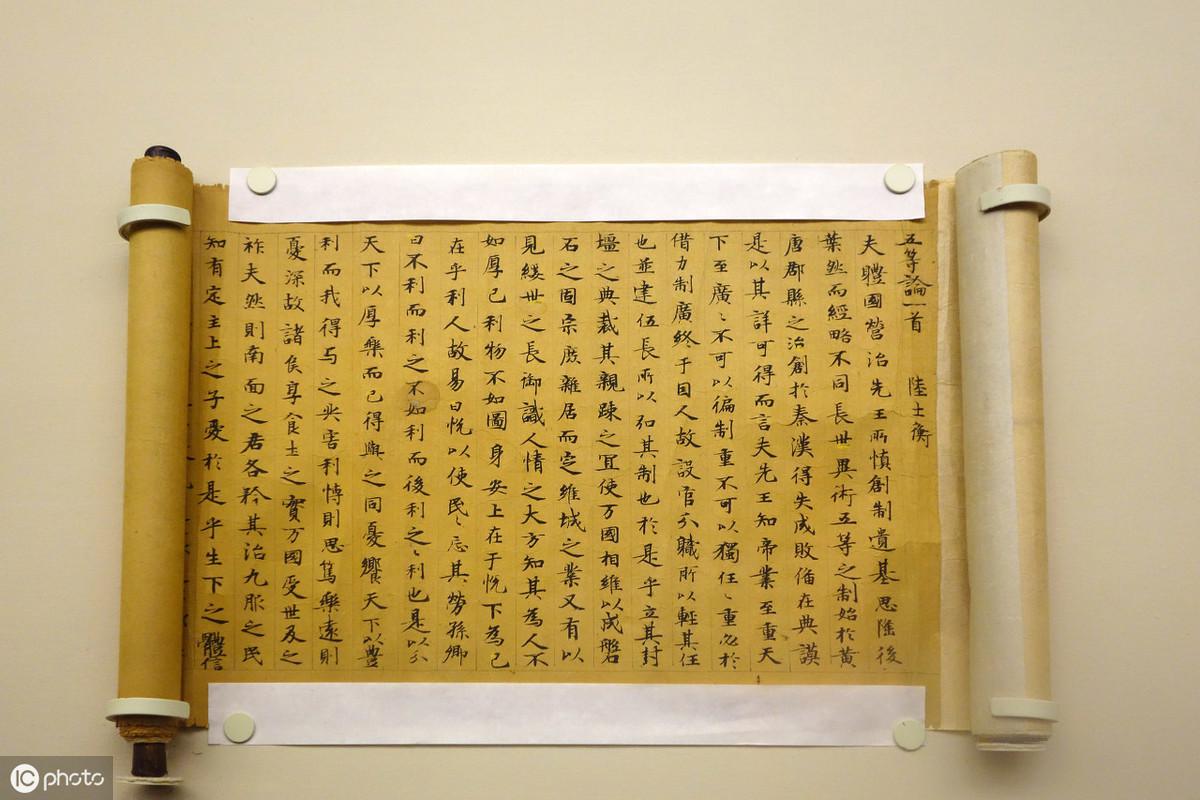 五等論一首 陸士衡
夫體國營治先王所慎創制遺基思隆後
葉然而經略不同長世異術五等之制始於黃
唐郡縣之治創於秦漢得失成敗俻在典謨
是以其詳可得而言夫先王知帝業至重天
下至廣〻不可以徧制重不可以獨任〻重必於
借力制廣終于因人故設官分軄所以輕其任
也並建伍長所以弘其制也於是乎立其封
壃之典裁其親踈之宜使万國相維以成磐
石之固宗庶雜居而定維城之業又有以
見綏世之長御識人情之大方知其為人不
如厚己利物不如圖身安上在于悅下為己
在乎利人故易曰悅以使民〻忘其勞孫卿
曰不利而利之不如利而後利之〻利也是以分
天下以厚樂而己得與之同憂饗天下以豊
利而我得与之共害利博則思篤樂遠則
憂深故諸侯享食土之實万國受世及之
祚夫然則南面之君各矜其治九服之民
知有定主上之子愛於是乎生下之體信
IC photo